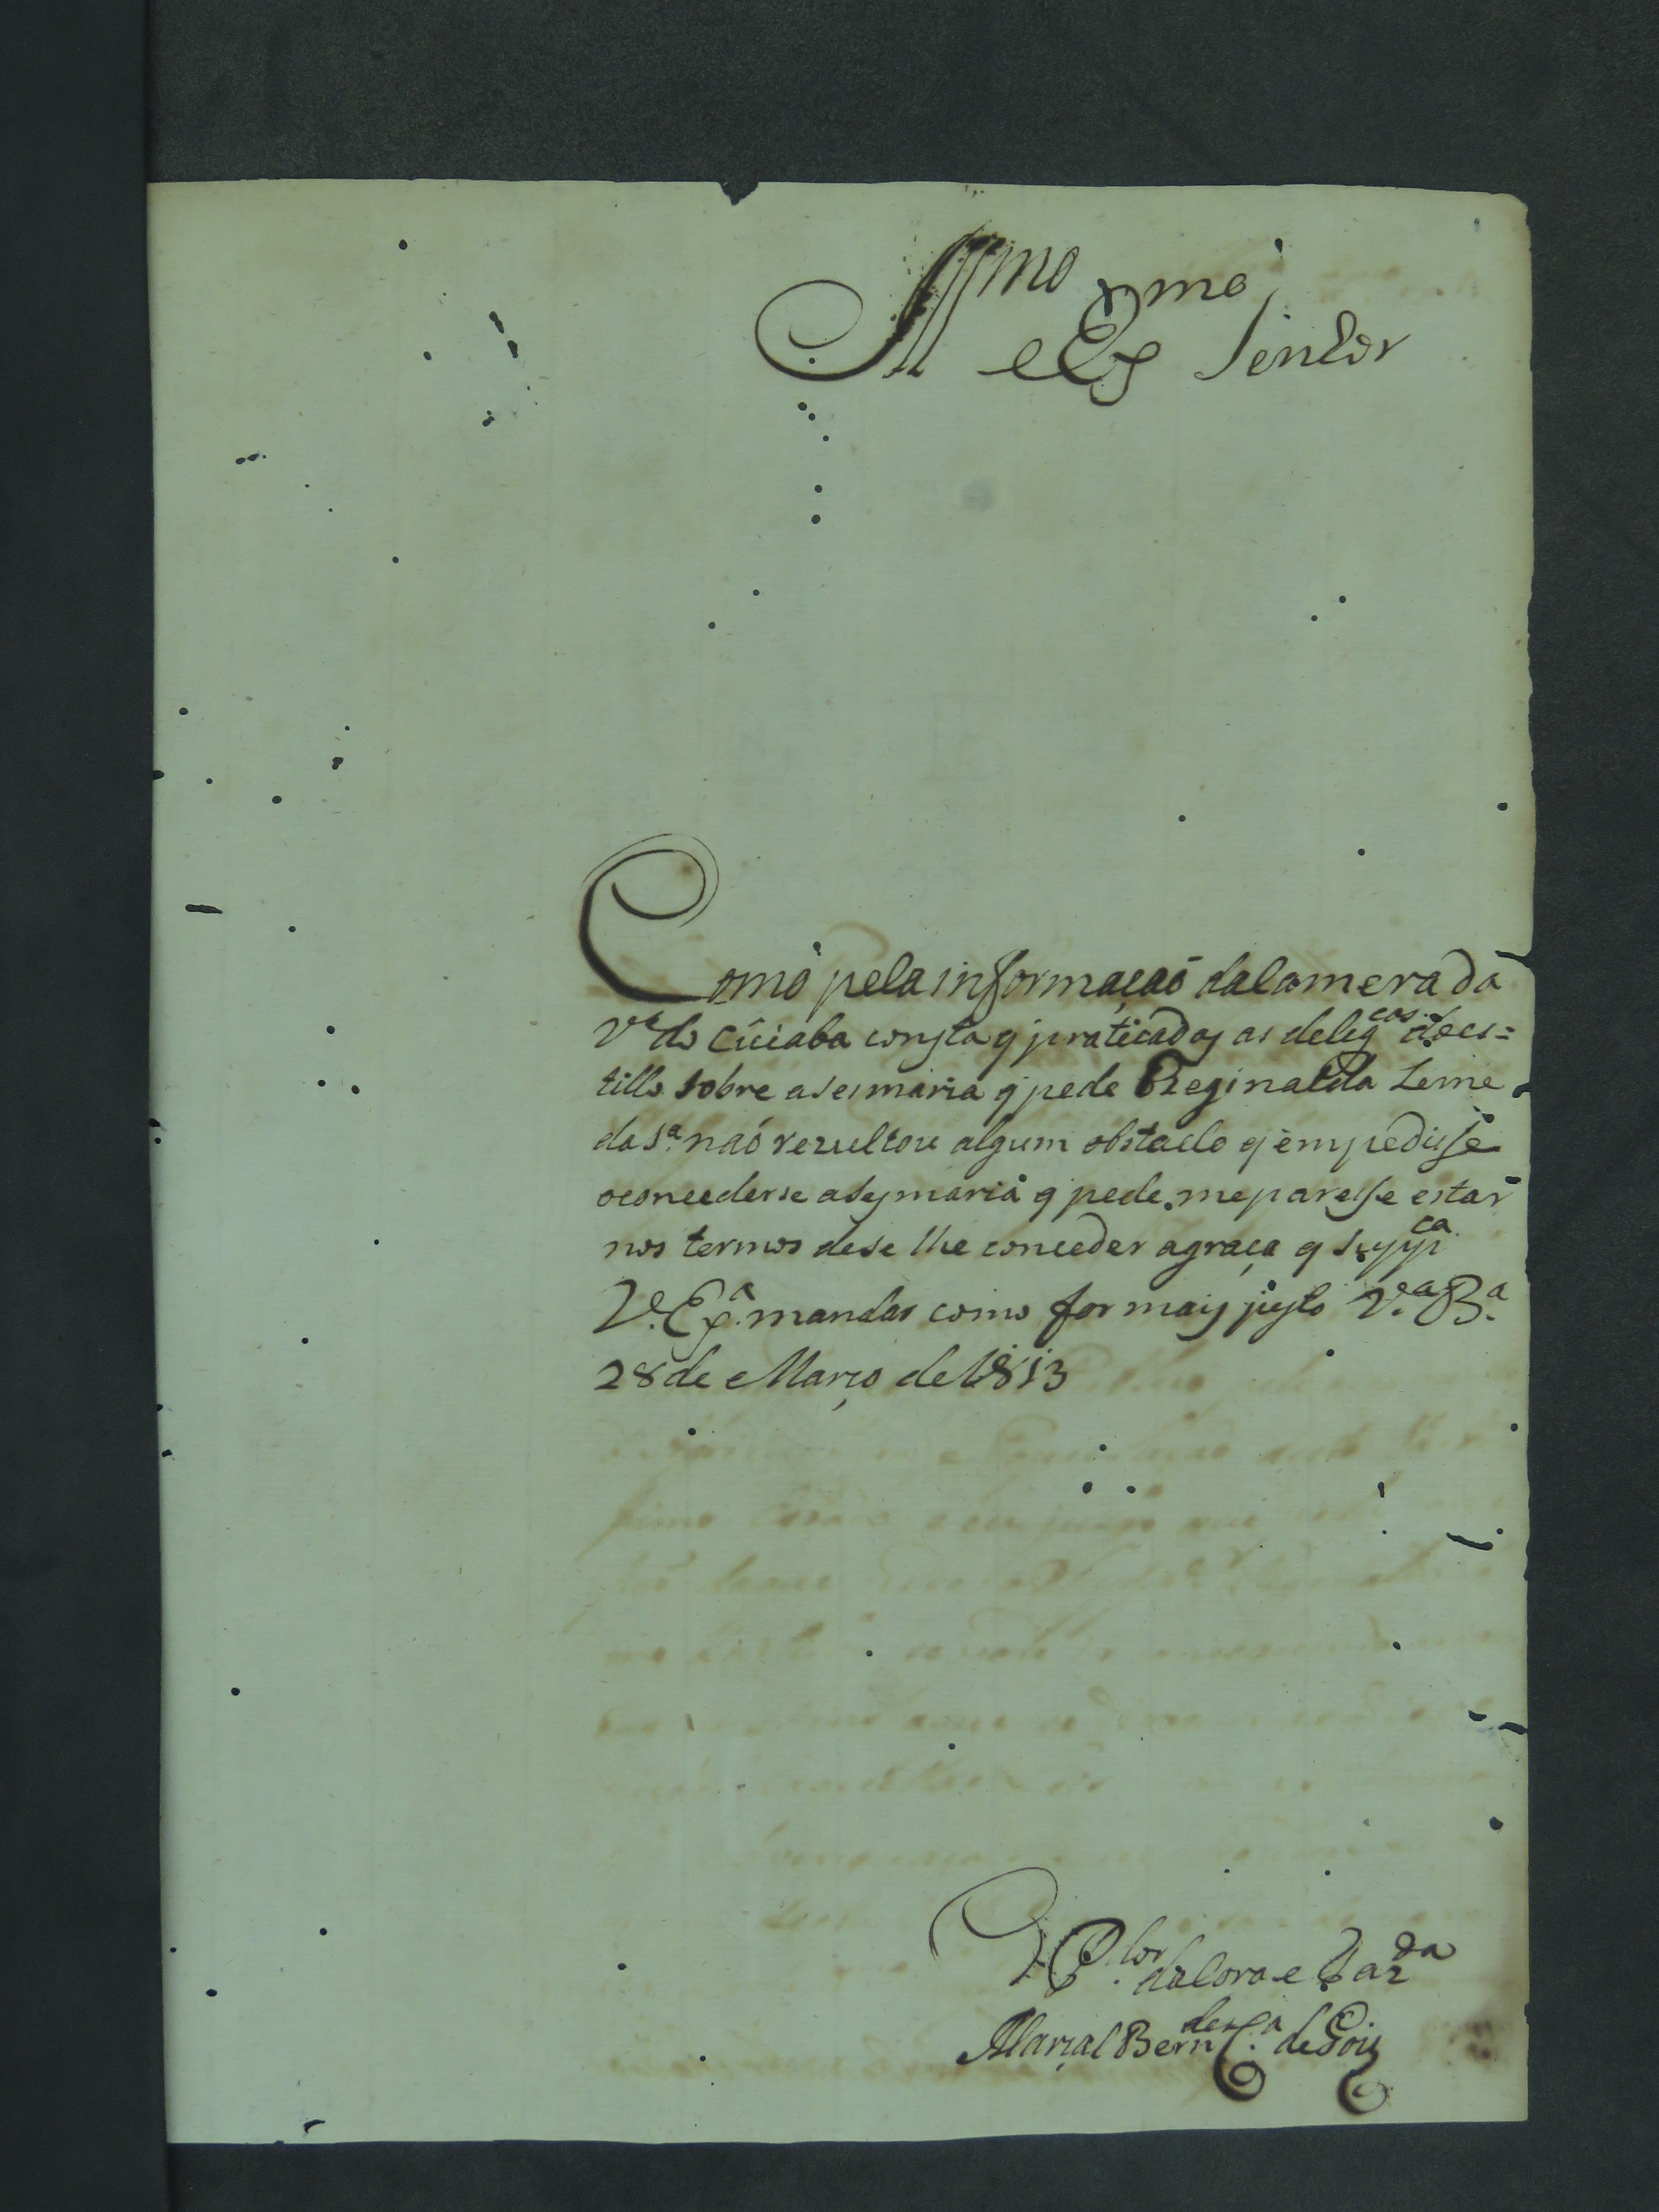 Illmo e Exmo Senhor
Como pela informaçaõ da Camera da
Va do Cuiaba consta q praticadas as deligcas do es=
tillo sobre a sesmaria q pede Reginalda Leme
da Sa naõ rezultou algum obstaclo q empedisse
o conceder se a sesmaria q pede. me paresse estar
nos termos de se lhe conceder a graça q suppca
V. Exa mandar como for mais justo Va Ba
28 de Março de 1813
da Coroa e Fazda
Marçal Bern des Ca de Gois